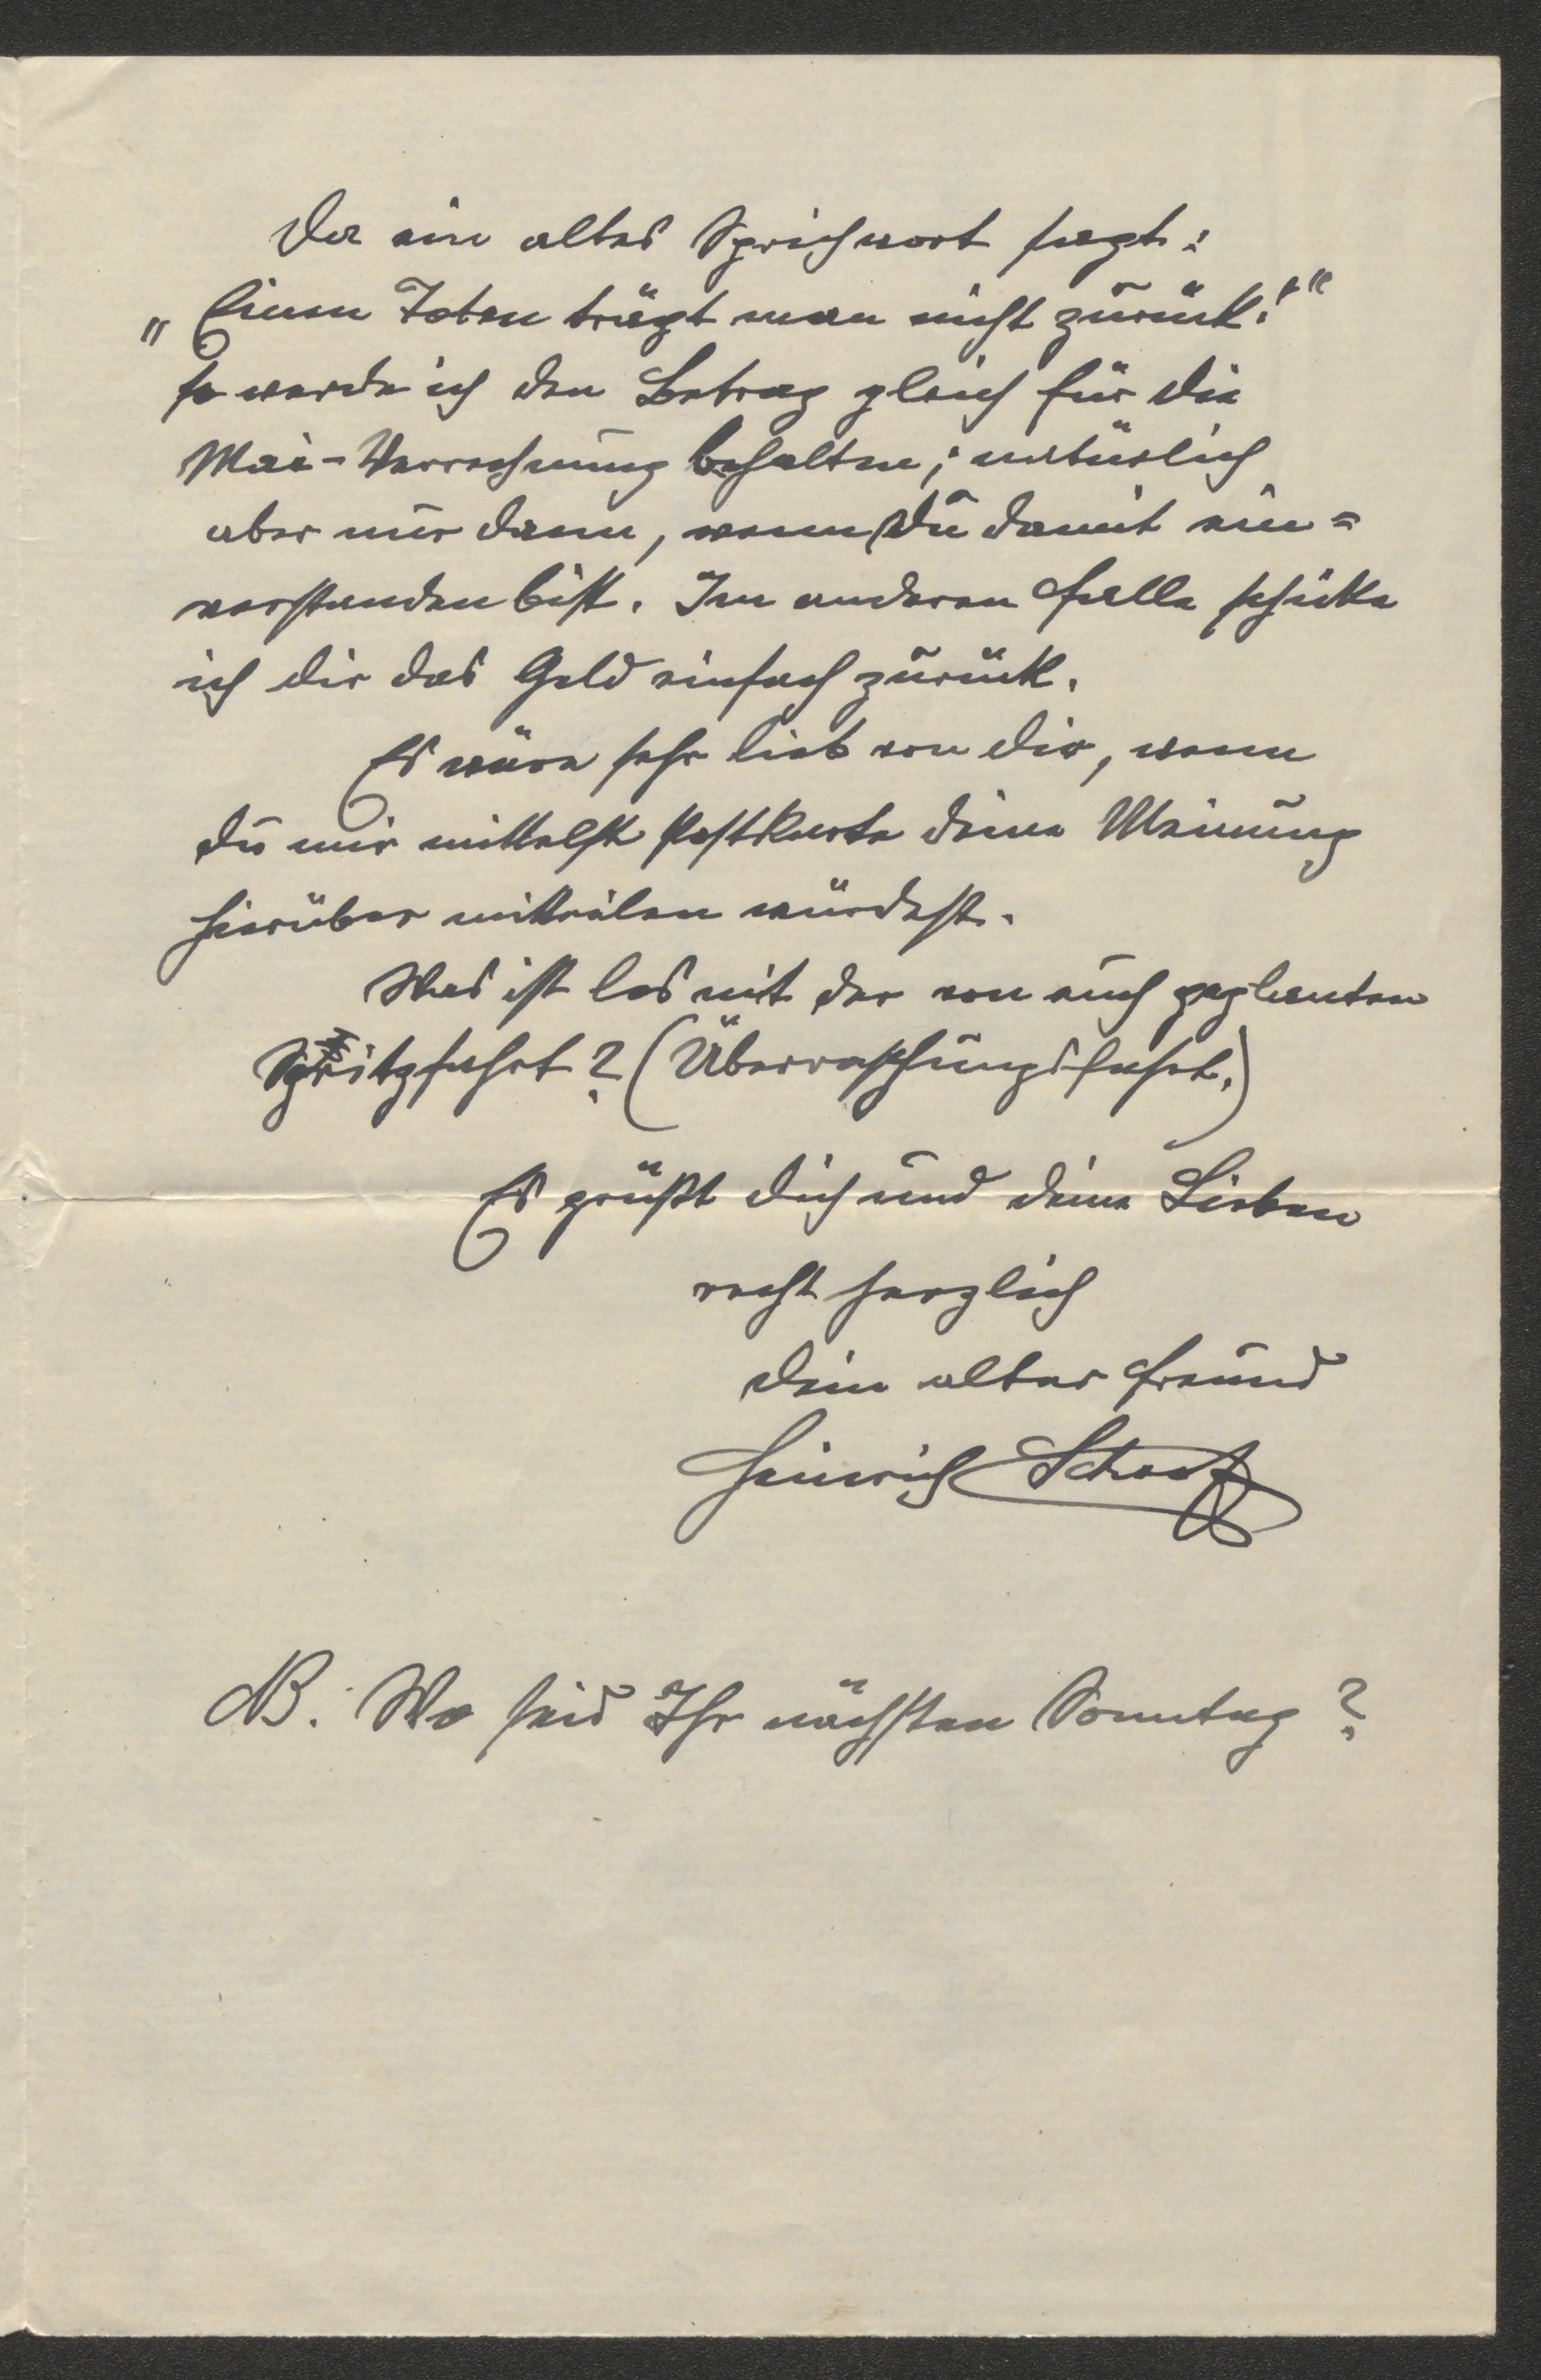 Da ein altes Sprichwort sagt:
„Einen Toten trägt man nicht zurück!“
so werde ich den Betrag gleich für die
Mai-Verrechnung behalten; natürlich
aber nur dann, wenn Du damit ein=
verstanden bist. Im anderen Falle schicke
ich dir das Geld einfach zurück.
Es wäre sehr lieb von dir, wenn
du mir mittelst Postkarte deine Meinung
hierüber mitteilen würdest.
Was ist los mit der von euch geplanten
Spritzfahrt? (Überraschungsfahrt.)
Es grüßt dich und deine Lieben
recht herzlich
dein alter Freund
Heinrich
NB. Wo seid Ihr nächsten Sonntag?